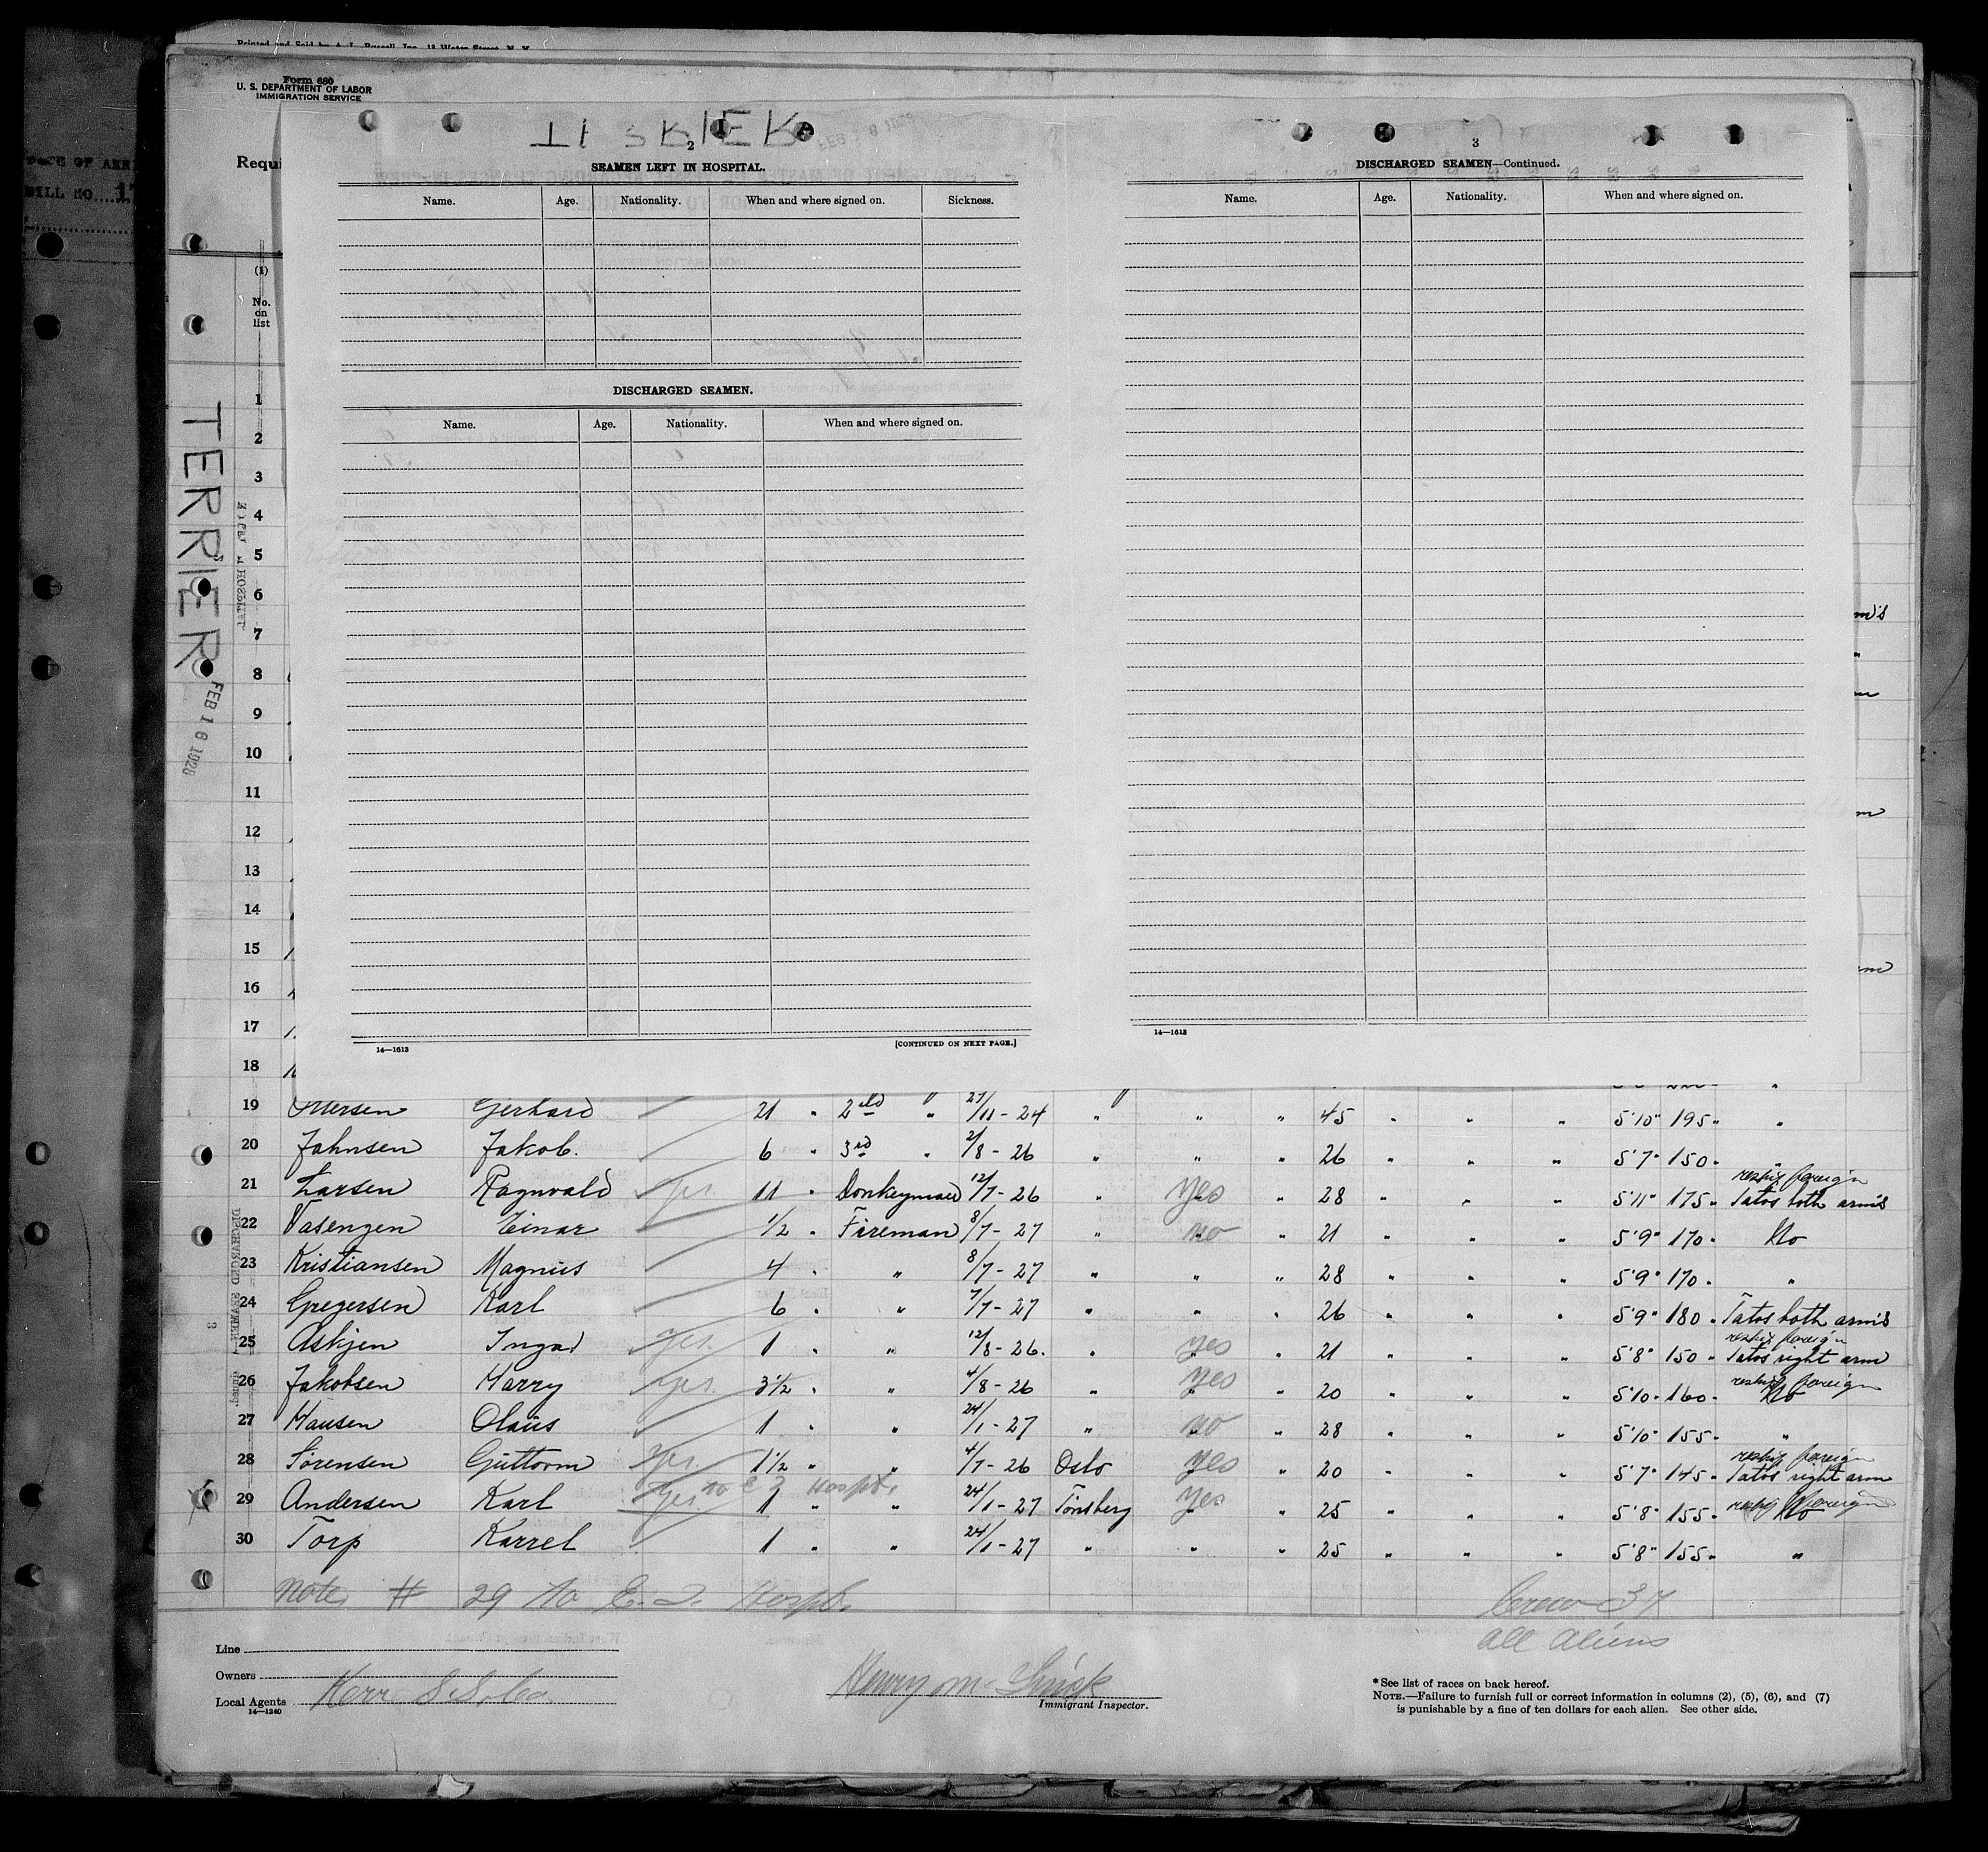 Form 680
U. S. DEPARTMENT OF LABOR
IMMIGRATION SERVICE
Requi
TERRIER
FEB 16 1928
BILL NO.
(1)
No. on list
2
SEAMEN LEFT IN HOSPITAL.
Name. Age. Nationality. When and where signed on. Sickness.
DISCHARGED SEAMEN.
Name. Age. Nationality. When and where signed on.
14—1613 [CONTINUED ON NEXT PAGE.]
3
DISCHARGED SEAMEN—Continued.
Name. Age. Nationality. When and where signed on.
14—1613
1
2
3
4
5
6
7
8
9
10
11
12
13
14
15
16
17
18
19 Gerhard 21 " 2nd " 27/11-24 " " " 45 " " " 5'10" 195 " "
20 Johnsen Jakob. 6 " 3rd " 2/8-26 " " " 26 " " " 5'7" 150 " "
21 Larsen Ragnvald yes 11 " Donkeyman 12/7-26 " yes " 28 " " " 5'11" 175 " reship foreign Tatos both arms
22 Vasengen Einar 1/2 " Fireman 8/7-27 " no " 21 " " " 5'9" 170 " No
23 Kristiansen Magnus 4 " " 8/7-27 " " " 28 " " " 5'9" 170 " "
24 Gregersen Karl 6 " " 7/7-27 " " " 26 " " " 5'9" 180 " Tatos both arms
25 Askjen Ingar yes 1 " " 12/8-26. " yes " 21 " " " 5'8" 150 " reship foreign Tatos right arm
26 Jakobsen Harry yes 3 1/2 " " 4/8-26 " yes " 20 " " " 5'10" 160 " reship foreign No
27 Hansen Olaus 1 " " 24/1-27 " no " 28 " " " 5'10" 155 " "
28 Sørensen Guttorm yes 1 1/2 " " 4/7-26 Oslo yes " 20 " " " 5'7" 145 " reship foreign Tatos right arm
to E I Hospt.
29 Andersen Karl yes 1 " " 24/1-27 Tønsberg yes " 25 " " " 5'8" 155 " reship foreign No
30 Torp Karrel 1 " " 24/1-27 " " " 25 " " " 5'8" 155 " "
Note # 29 to E. I. Hospt. Crew 37
all aliens
Line
Owners
Local Agents Kerr S.S. Co.
14—1240
Immigrant Inspector.
* See list of races on back hereof.
NOTE.—Failure to furnish full or correct information in columns (2), (5), (6), and (7)
is punishable by a fine of ten dollars for each alien. See other side.